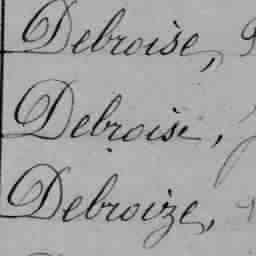 Debroise,
Debroise,
Debroize,